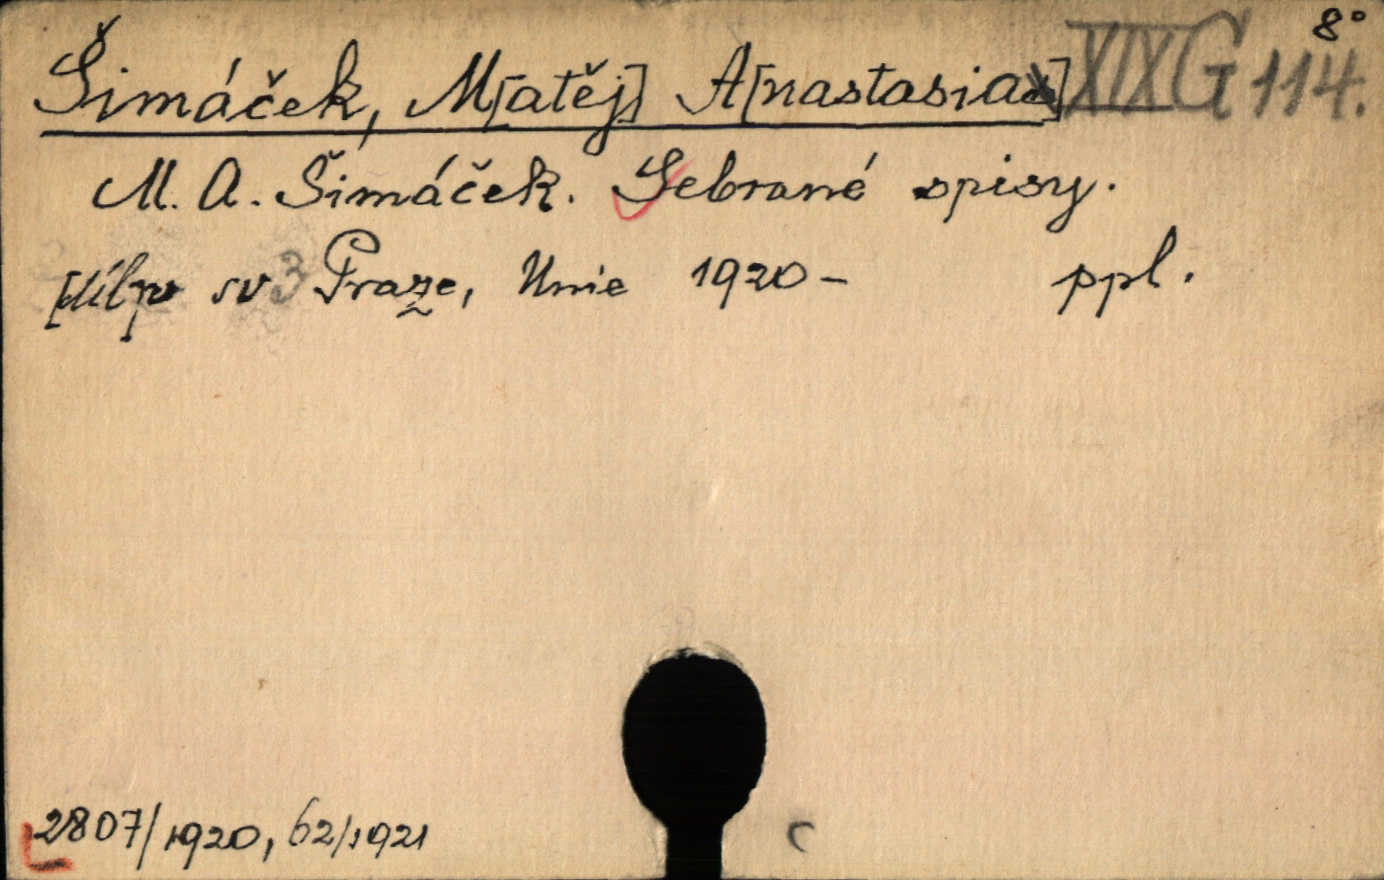 8°
Šimáček, M[atěj] A[nastasia] XIX G 114.
M. A. Šimáček. Sebrané spisy.
sv 3 Praze, Unie 1920 – ppl.
2807/1920, 62/1921